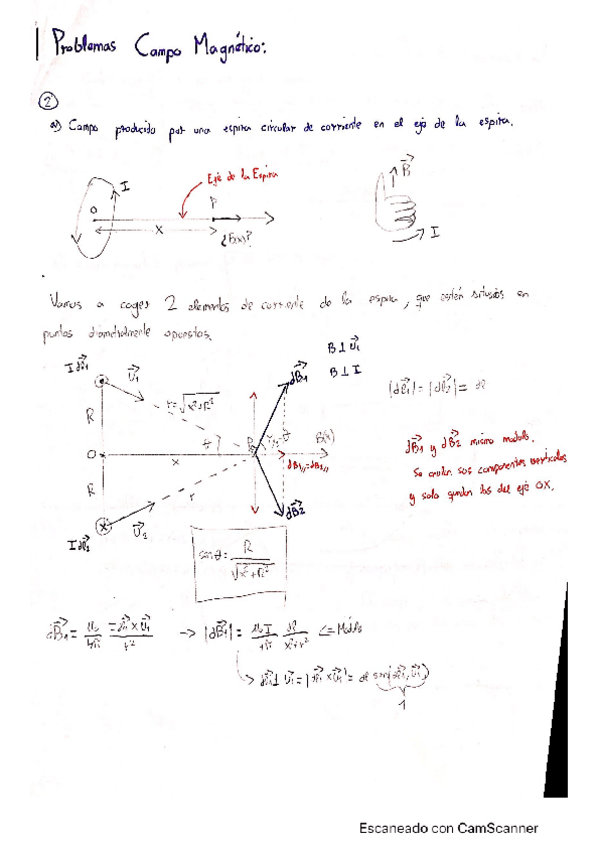 Problemas Campo Magnético:
2
a) Campo producido por una espira circular de corriente en el eje de la espira.
Eje de la Espira
I
O
P
x
¿B(x)?
B⃗
I
Vamos a coger 2 elementos de corriente de la espira, que estén situados en
puntos diametralmente opuestos.
I dl⃗1
U⃗1
r=√x²+R²
R
O
x
θ
P
R
r
U⃗2
I dl⃗2
dB⃗1
B(x)
dB1,,=dB2,,
dB⃗2
B⊥U⃗1
B⊥I
|dl⃗1|=|dl⃗2|= dl
dB⃗1 y dB⃗2 mismo modulo.
Se anulan sus componentes verticales
y solo quedan las del eje OX.
senθ= R/√x²+R²
|dB⃗1|= μ0I/4π dl/x²+R² <= Módulo
Escaneado con CamScanner